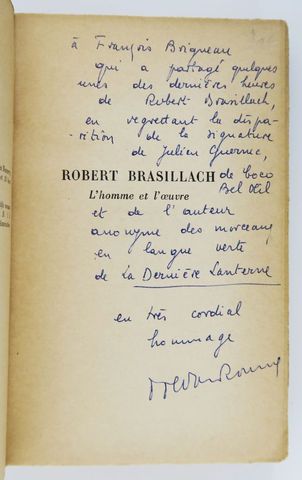 à François Brigneau
qui a partagé quelques
unes des dernières heures
de Robert Brasillach,
en regrettant la dispa-
rition de la signature
de Julien Guernec,
ROBERT BRASILLACH de Coco
L'homme et l'œuvre Bel Œil
et de l'auteur
anonyme des morceaux
en langue verte
de La Dernière Lanterne
en très cordial
hommage